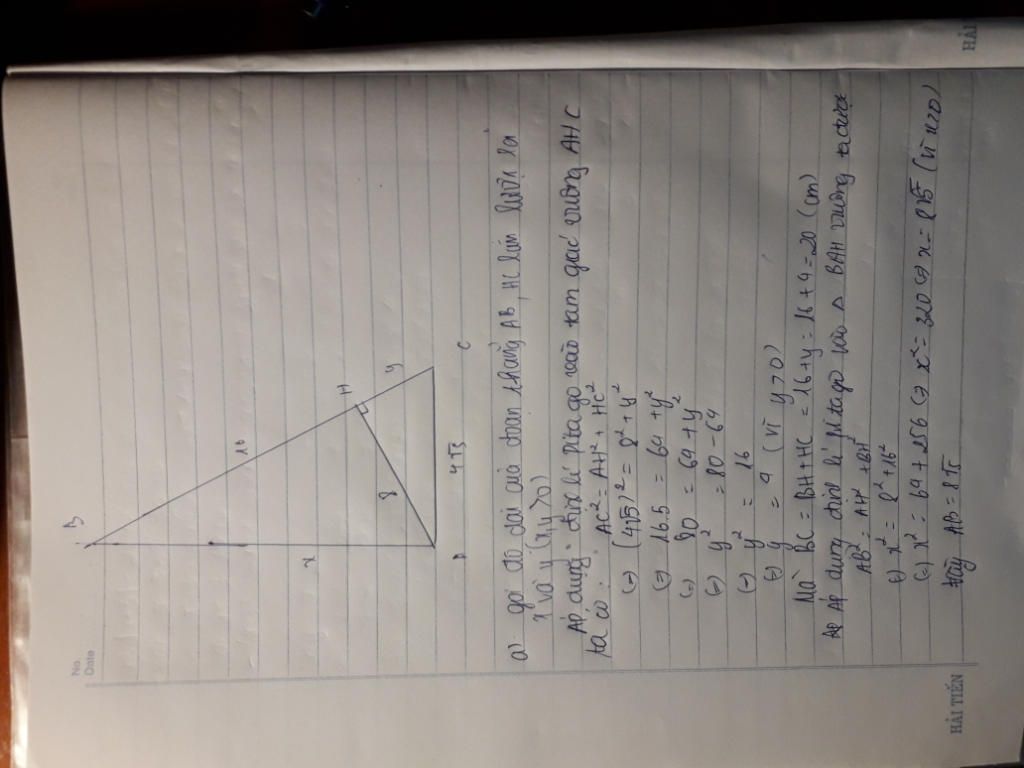 No.
Date
B
16
x
H
8
y
4√5
C
a) gọi độ dài của đoạn thẳng AB, HC lần lượt là
x và y (x,y>0)
Áp dụng định lí pitago vào tam giác vuông AHC
ta có: AC² = AH² + HC²
(=) (4√5)² = 8² + y²
(=) 16.5 = 64 + y²
(=) 80 = 64 + y²
(=) y² = 80 - 64
(=) y² = 16
(=) y = 4 (vì y>0)
Mà BC = BH + HC = 16 + y = 16 + 4 = 20 (cm)
Áp dụng định lí pitago vào Δ BAH vuông ta được
AB² = AH² + BH²
(=) x² = 8² + 16²
(=) x² = 64 + 256 (=) x² = 320 (=) x = 8√5 (vì x>0)
Vậy AB = 8√5
HẢI TIẾN
HẢI